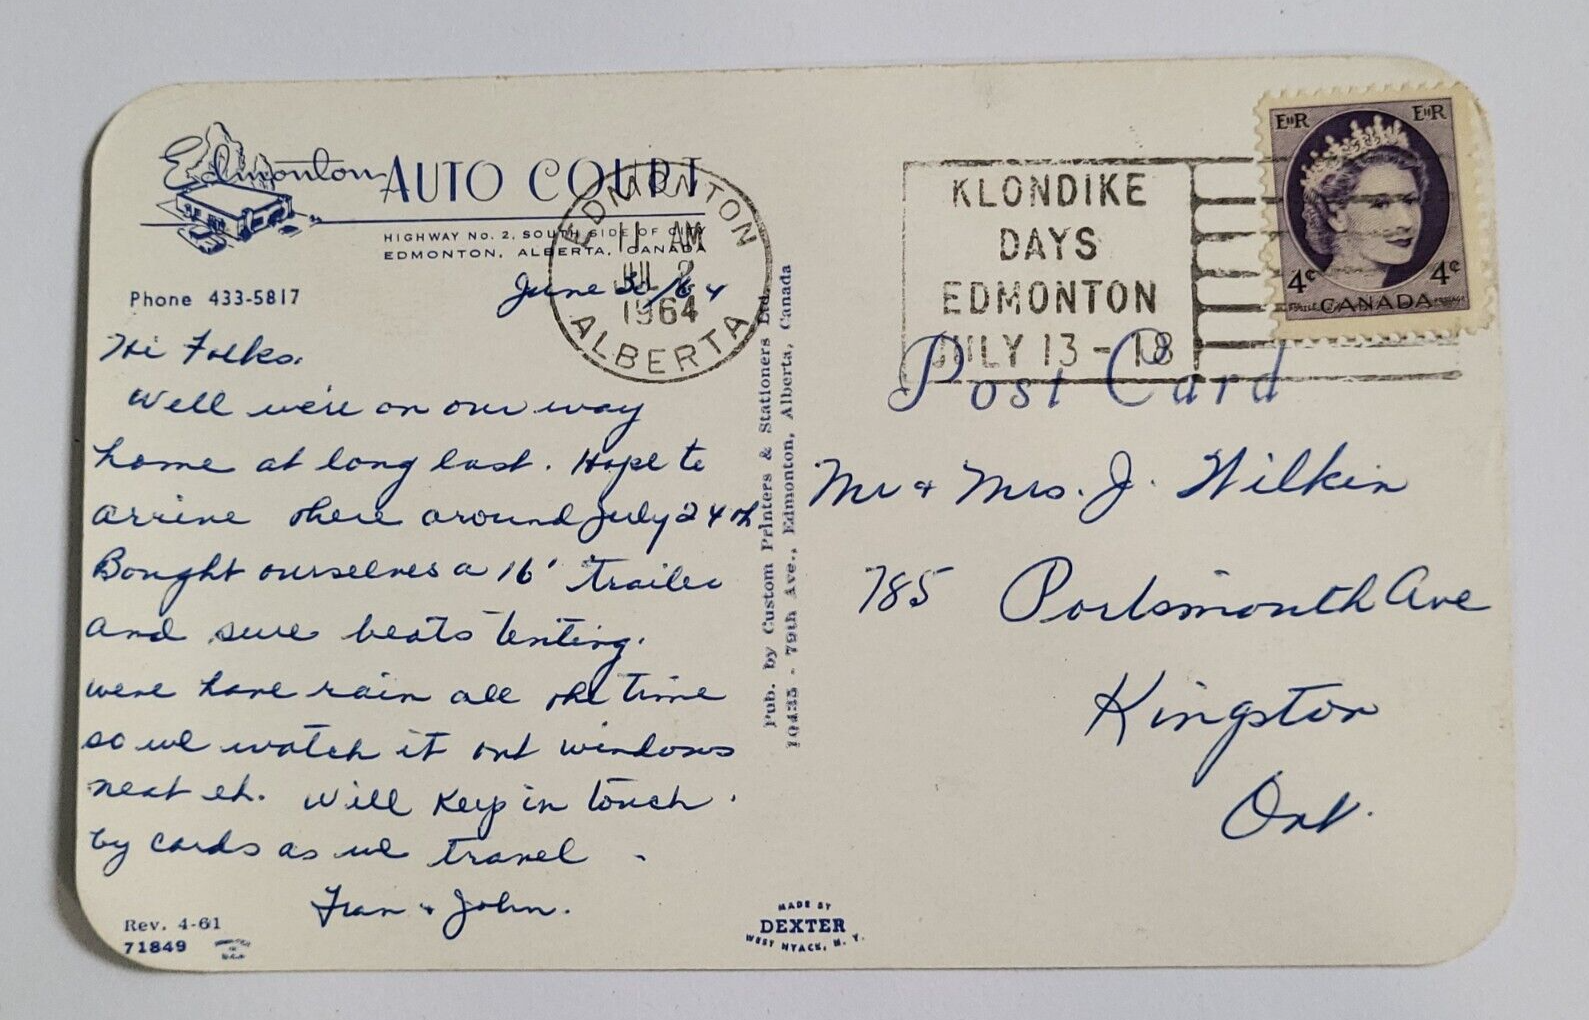 Edmonton AUTO COURT
HIGHWAY No. 2, SOUTH SIDE OF CITY
EDMONTON, ALBERTA, CANADA
Phone 433-5817
June 30/64
Hi Folks.
Well we're on our way
home at long last. Hope to
arrive there around July 24th
Bought ourselves a 16' trailer
and sure beats tenting.
were have rain all the time
so we watch it out windows
neat eh. Will keep in touch.
by cards as we travel.
Fran & John.
Rev. 4-61
71849
EDMONTON
11 AM
JUL 2
1964
ALBERTA
Pub. by Custom Printers & Stationers Ltd.
10435 - 79th Ave., Edmonton, Alberta, Canada
MADE BY
DEXTER
WEST NYACK, N. Y.
KLONDIKE
DAYS
EDMONTON
JULY 13 - 18
EIIR EIIR
4¢ 4¢
CANADA POSTAGE
Post Card
Mr & Mrs. J. Wilkin
785 Portsmouth Ave
Kingston
Ont.